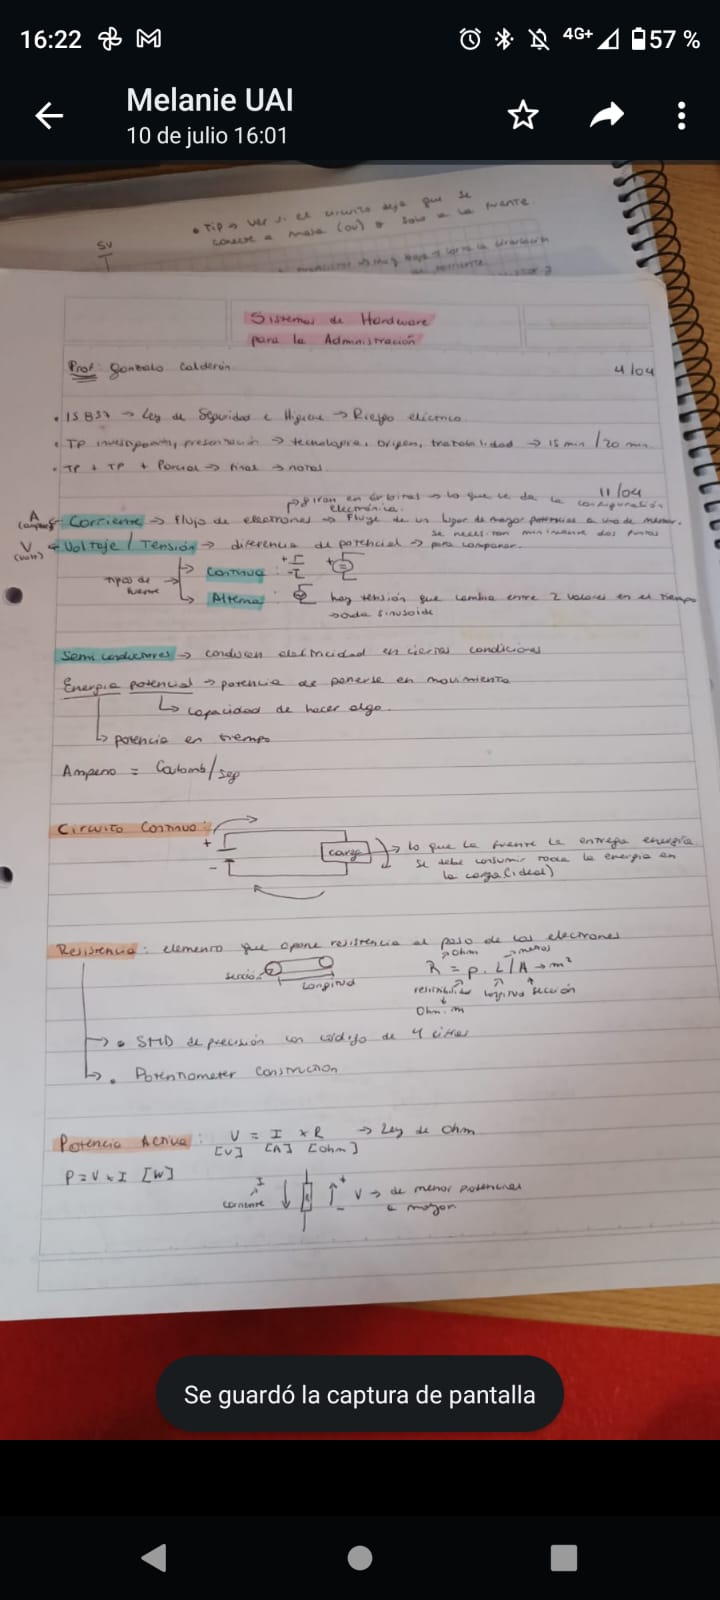 16:22
4G+
57 %
Melanie UAI
10 de julio 16:01
• Tip → ver si el circuito deja que se
conecte a masa (0V) o solo a la fuente.
5V
Sistemas de Hardware
para la Administración
Prof: Gonzalo Calderón
4/04
→ Ley de Seguridad e Higiene → Riesgo eléctrico
• TP investigación, presentación → tecnologías, origen, trazabilidad → 15 min / 20 min
• TP + TP + Parcial → final → notas
11/04
→ giran en órbitas → lo que le da la configuración
electrónica.
A (ampere) ← Corriente → flujo de electrones → Fluye de un lugar de mayor potencial a uno de menor.
se necesitan mínimamente dos puntos
V (volt) ← Voltaje / Tensión → diferencia de potencial → para comparar.
tipos de fuente → Continua : + -
→ Alterna : hay tensión que cambia entre 2 valores en el tiempo
→ onda sinusoide
Semiconductores → conducen electricidad en ciertas condiciones
Energía potencial → potencia de ponerse en movimiento
↳ capacidad de hacer algo.
↳ potencia en tiempo
Ampere = Coulomb/seg
Circuito Continuo:
+
-
carga
→ lo que la fuente le entrega energía
se debe consumir toda la energía en
la carga (ideal)
Resistencia: elemento que opone resistencia al paso de los electrones
sección
longitud
Ohm
metros
R = ρ . L / A → m²
resistividad longitud sección
Ohm . m
→ • SMD de precisión con código de 4 cifras
↳ • Potentiometer Construction
Potencia Activa: V = I x R → Ley de Ohm
[V] [A] [Ohm]
P = V x I [W]
I
corriente
+
-
V → de menor potencial
a mayor
Se guardó la captura de pantalla